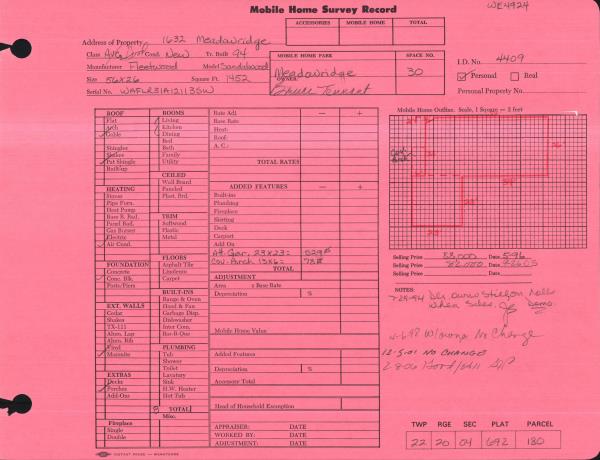 WE4924
Mobile Home Survey Record
ACCESSORIES MOBILE HOME TOTAL
Address of Property 1632 Meadowridge
Class Ave Cond. New Yr. Built 94
Manufacturer Fleetwood Model Sandalwood
Size 56x26 Square Ft. 1452
Serial No. WAFLR31A12113SW
MOBILE HOME PARK SPACE NO.
Meadowridge 30
OWNER
Bruce Tennant
I.D. No. 4409
Personal Real
Personal Property No.
ROOF
Flat
Arch
Gable
Shingles
Shakes
Pat Shingle
Built-up
HEATING
Stoves
Pipe Furn.
Heat Pump
Base B. Rad.
Panel Rad.
Gas Burner
Electric
Air Cond.
FOUNDATION
Concrete
Conc. Blk.
Posts/Piers
EXT. WALLS
Cedar
Shakes
TX-111
Alum. Lap
Alum. Rib
Vinyl
Masonite
EXTRAS
Decks
Porches
Add-Ons
Fireplace
Single
Double
ROOMS
Living
Kitchen
Dining
Bed
Bath
Family
Utility
CEILED
Wall Board
Paneled
Plast. Brd.
TRIM
Softwood
Plastic
Metal
FLOORS
Asphalt Tile
Linoleum
Carpet
BUILT-INS
Range & Oven
Hood & Fan
Garbage Disp.
Dishwasher
Inter Com.
Bar-B-Que
PLUMBING
Tub
Shower
Toilet
Lavatory
Sink
H.W. Heater
Hot Tub
8 TOTAL
Misc.
Rate Adj. — +
Base Rate
Heat:
Roof:
A. C.:
TOTAL RATES
ADDED FEATURES — +
Built-ins
Plumbing
Fireplace
Skirting
Deck
Carport
Add On
Att. Gar. 23x23= 529
Cov. Porch 13x6= 78
TOTAL
ADJUSTMENT
Area x Base Rate
Depreciation %
Mobile Home Value
Added Features
Depreciation %
Accessory Total
Head of Household Exemption
APPRAISER: DATE
WORKED BY: DATE
ADJUSTMENT: DATE
Mobile Home Outline. Scale, 1 Square = 2 feet
Selling Price 83,000 Date 5-96
Selling Price 82,000 Date
Selling Price Date
NOTES:
4-6-98 No Change
12-5-01 NO CHANGE
TWP RGE SEC PLAT PARCEL
22 20 04 692 180